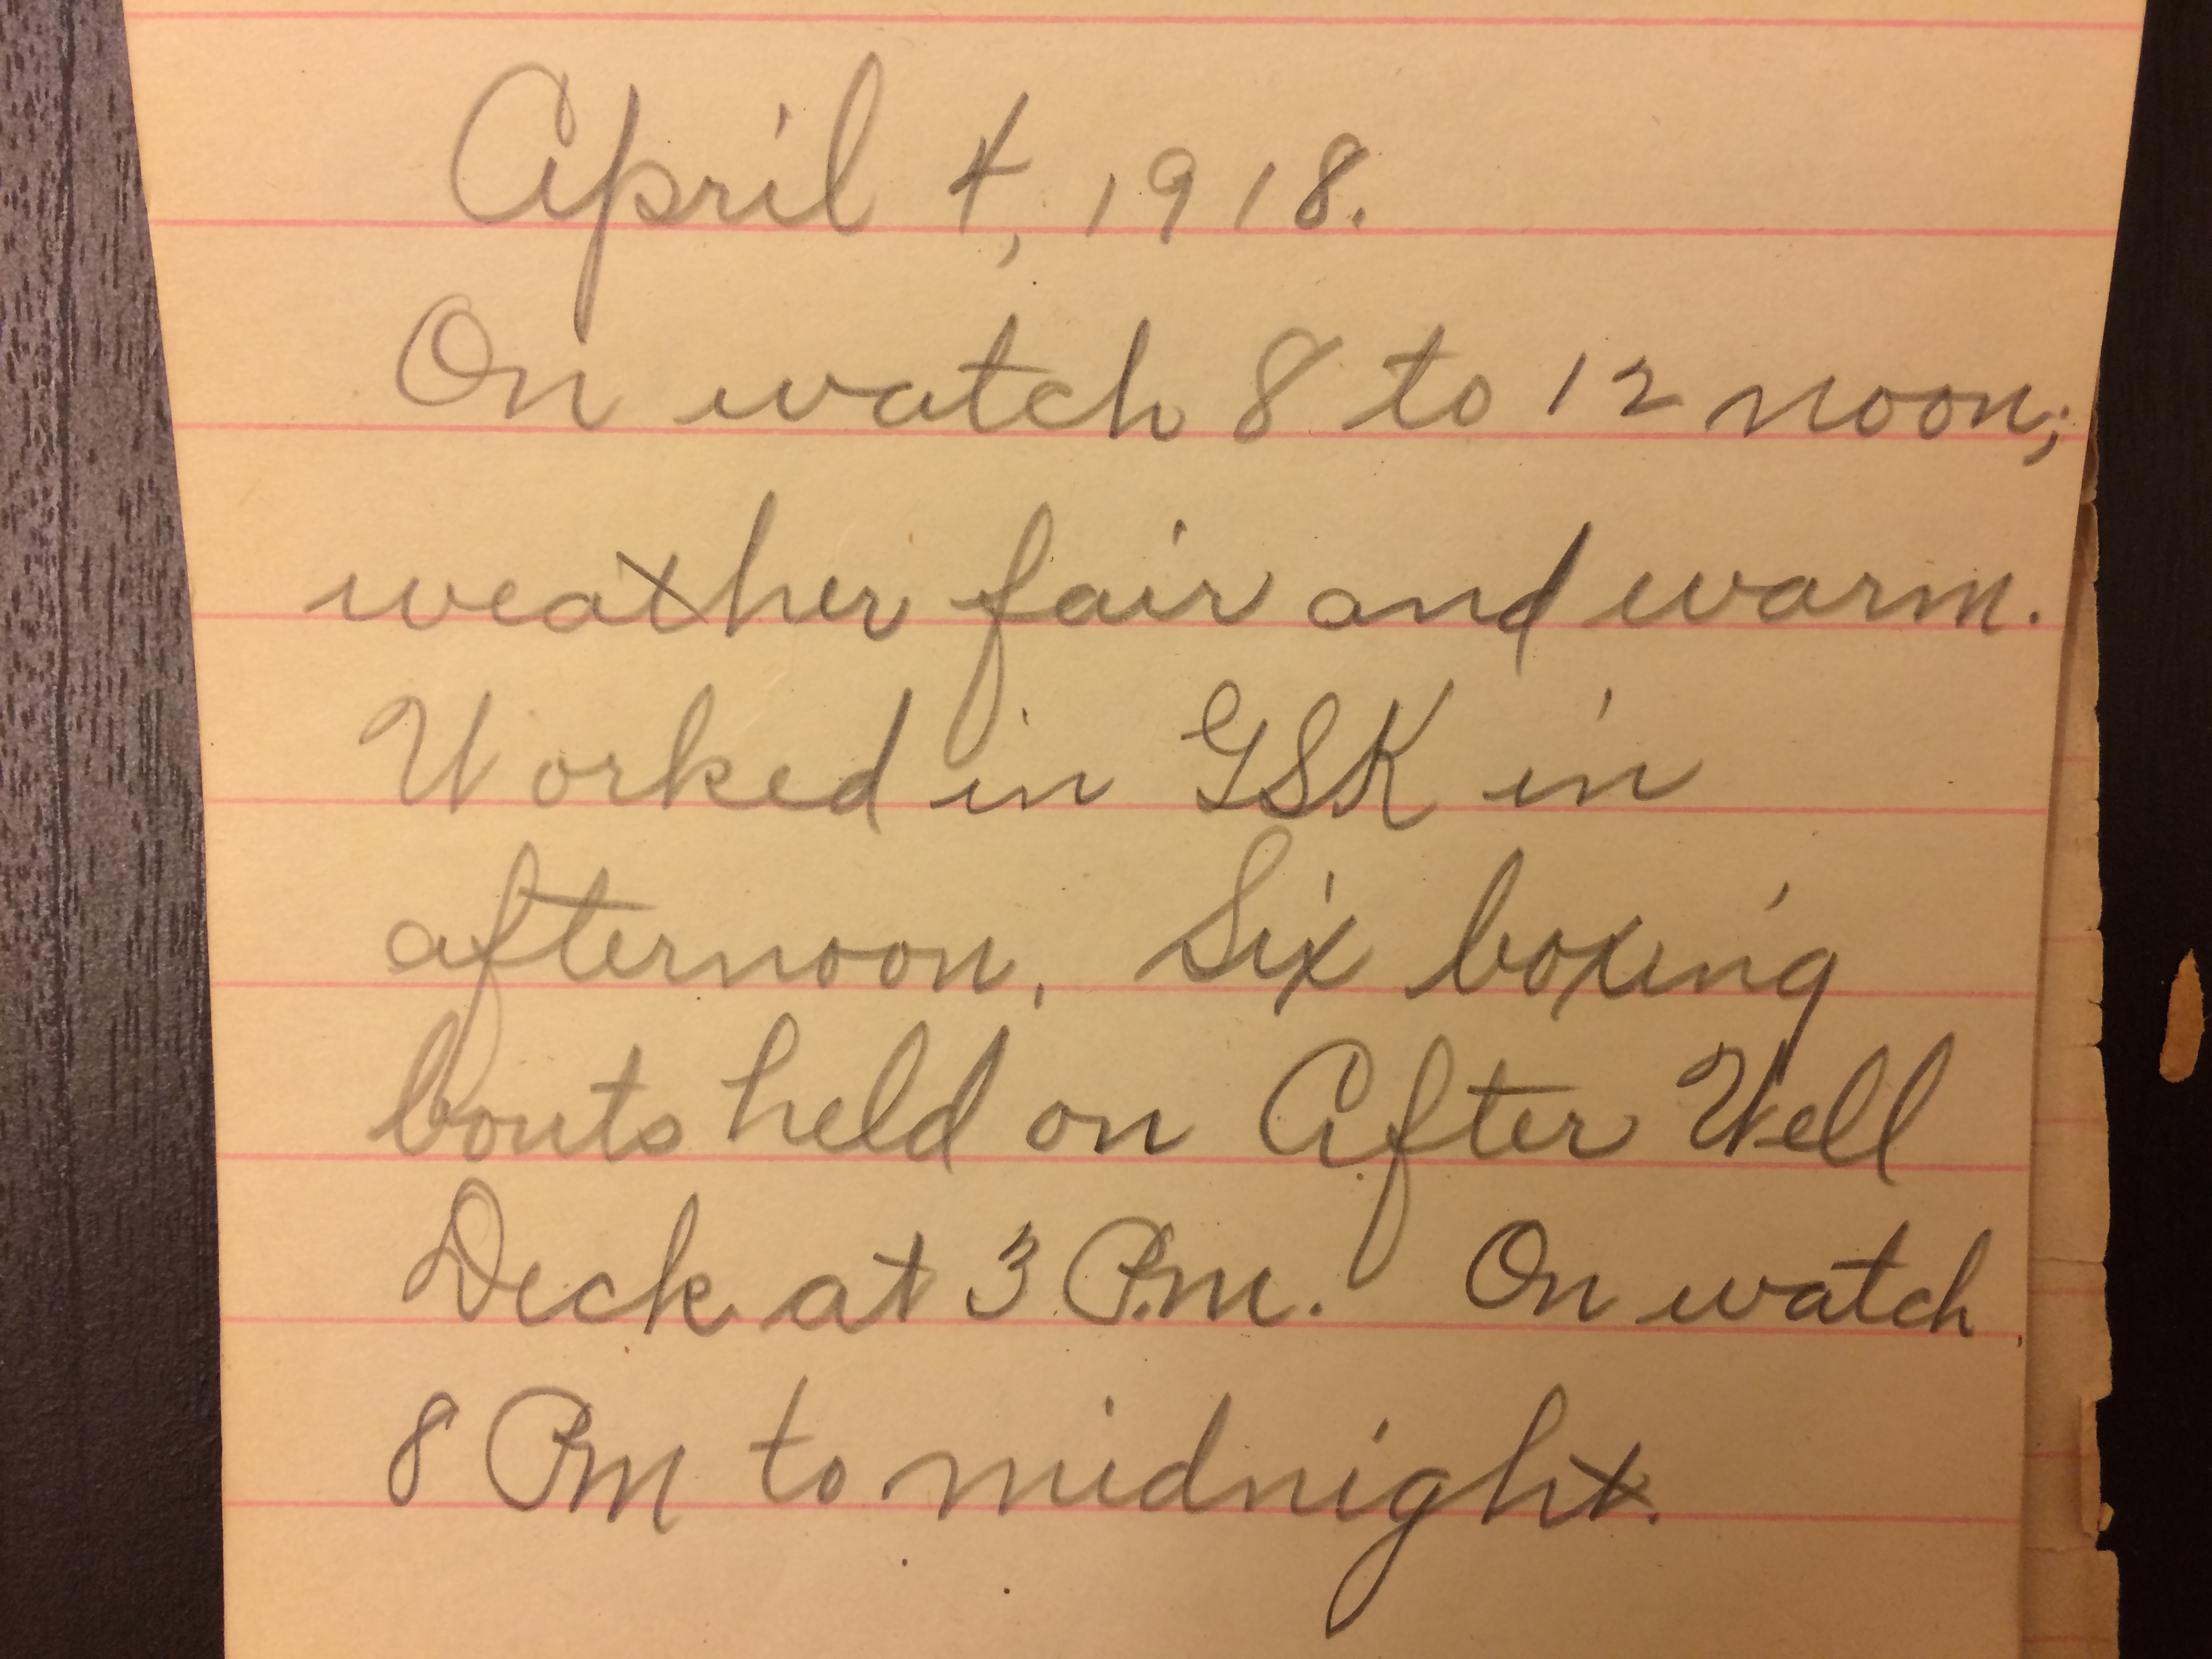 April 4, 1918.
On watch 8 to 12 noon;
weather fair and warm.
Worked in GSK in
afternoon. Six boxing
bouts held on After Well
Deck at 3 P.m. On watch
8 Pm to midnight.